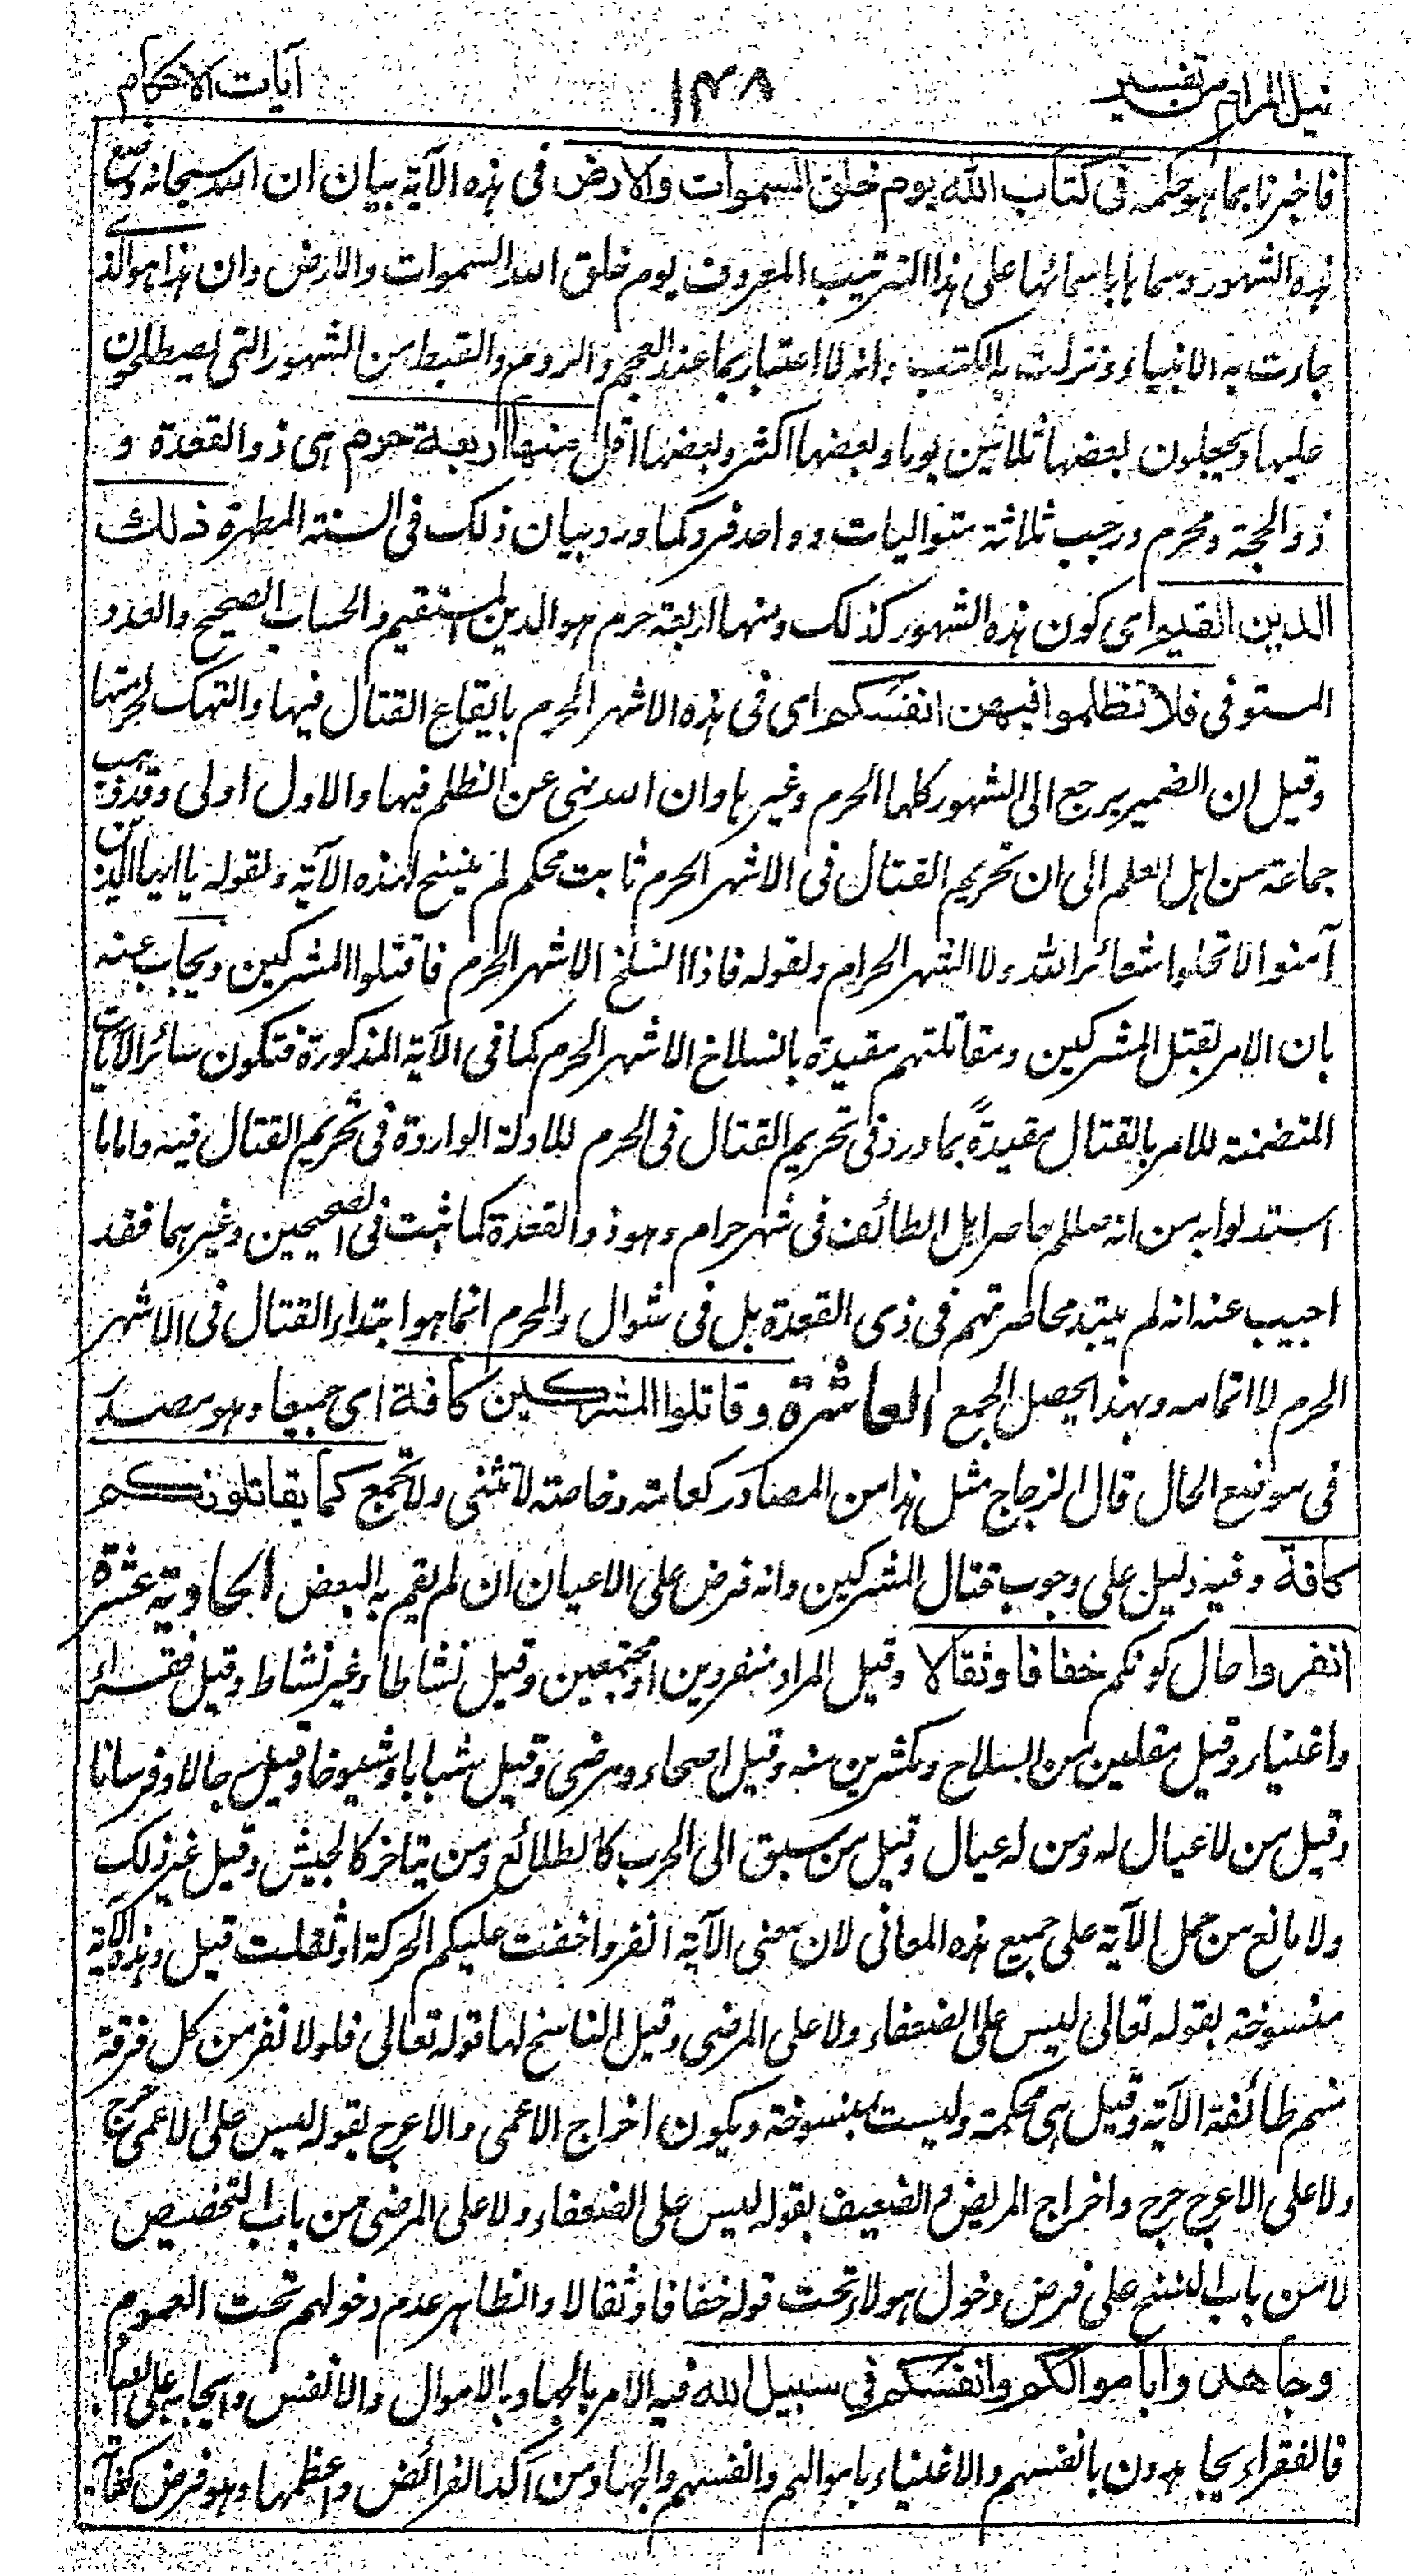 نيل المرام من تفسير ١٤٨ آيات الاحكام
فاخبرنا بما هو حكمه فى كتاب الله يوم خلق السموات والارض فى هذه الآية بيان ان الله سبحانه وضع
هذه الشهور وسماها باسمائها على هذا الترتيب المعروف يوم خلق الله السموات والارض وان هذا هو الذى
جاءت به الانبياء ونزلت به الكتب وانه لا اعتبار بما عند العجم والروم والقبط من الشهور التى يصطلحون
عليها ويجعلون بعضها ثلاثين يوما وبعضها اكثر وبعضها اقل منها اربعة حرم هى ذو القعدة و
ذو الحجة ومحرم ورجب ثلاثة متواليات وواحد فرد كما ورد بيان ذلك فى السنة المطهرة ذلك
الدين القيم اى كون هذه الشهور كذلك ومنها اربعة حرم هو الدين المستقيم والحساب الصحيح والعدد
المستوفى فلا تظلموا فيهن انفسكم اى فى هذه الاشهر الحرم بايقاع القتال فيها والتهتك لحرمتها
وقيل ان الضمير يرجع الى الشهور كلها الحرم وغيرها وان الله نهى عن الظلم فيها والاول اولى وقد ذهب
جماعة من اهل العلم الى ان تحريم القتال فى الاشهر الحرم ثابت محكم لم ينسخ لهذه الآية ولقوله يا ايها الذين
آمنوا لا تحلوا شعائر الله ولا الشهر الحرام ولقوله فاذا انسلخ الاشهر الحرم فاقتلوا المشركين ويجاب عنه
بان الامر بقتل المشركين ومقاتلتهم مقيدة بانسلاخ الاشهر الحرم كما فى الآية المذكورة فتكون سائر الآيات
المتضمنة للامر بالقتال مقيدةً بما ورد فى تحريم القتال فى الحرم للادلة الواردة فى تحريم القتال فيه واما ما
استدلوا به من انه صللم حاصر اهل الطائف فى شهر حرام وهو ذو القعدة كما ثبت فى الصحيحين وغيرهما فقد
اجيب عنه انه لم يبتد محاصرتهم فى ذى القعدة بل فى شوال والمحرم انما هو ابتداء القتال فى الاشهر
الحرم لا اتمامه وبهذا يحصل الجمع العاشرة وقاتلوا المشركين كافة اى جميعا وهو مصدر
فى موضع الحال قال الزجاج مثل هذا من المصادر كعامة وخاصة لا تثنى ولا تجمع كما يقاتلونكم
كافة وفيه دليل على وجوب قتال المشركين وانه فرض على الاعيان ان لم يقم به البعض الحادية عشرة
انفروا حال كونكم خفافا وثقالا وقيل المراد منفردين او مجتمعين وقيل نشاطا وغير نشاط وقيل فقراء
واغنياء وقيل مقلين من السلاح ومكثرين منه وقيل اصحاء ومرضى وقيل شبابا وشيوخا وقيل رجالا وفرسانا
وقيل من لا عيال له ومن له عيال وقيل من سبق الى الحرب كالطلائع ومن يتاخر كالجيش وقيل غير ذلك
ولا مانع من حمل الآية على جميع هذه المعانى لان معنى الآية انفروا خفت عليكم الحركة او ثقلت قيل وهذه الآية
منسوخة بقوله تعالى ليس على الضعفاء ولا على المرضى وقيل الناسخ لها قوله تعالى فلولا نفر من كل فرقة
منهم طائفة الآية وقيل هى محكمة وليست بمنسوخة ويكون اخراج الاعمى والاعرج بقوله ليس على الاعمى حرج
ولا على الاعرج حرج واخراج المريض والضعيف بقوله ليس على الضعفاء ولا على المرضى من باب التخصيص
لا من باب النسخ على فرض دخول هولاء تحت قوله خفافا وثقالا والظاهر عدم دخولهم تحت العموم
وجاهدوا باموالكم وانفسكم فى سبيل الله فيه الامر بالجهاد بالاموال والانفس وايجابه على العباد
فالفقراء يجاهدون بانفسهم والاغنياء باموالهم وانفسهم والجهاد من آكد الفرائض واعظمها وهو فرض كفاية